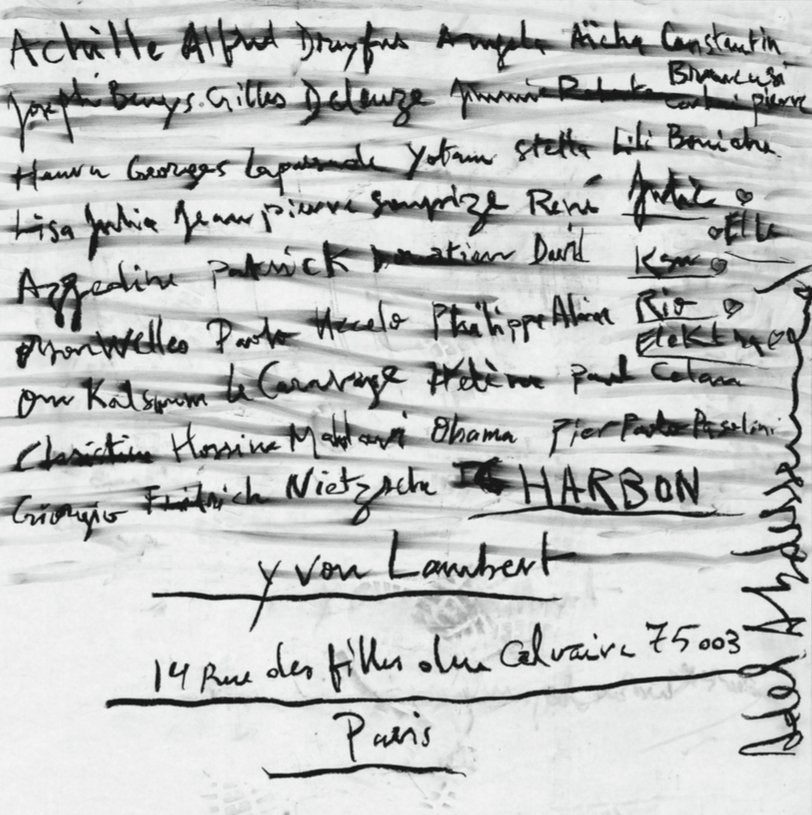 Achille Alfred Dreyfus Angela Aïcha Constantin
Brancusi
Joseph Beuys. Gilles Deleuze Jimmie pierre
Henra Georges Lapassade Yotam Stella Lili Boniche
Lisa Julia Jean pierre René Judic
Elle
Azzedine Patrick David Ken
Orson Welles Paolo Uccelo Philippe Alain Rio
Elektra
Om Kalsoum Le Caravage Hélène paul Celan
Christian Hossine Mahdavi Obama Pier Paolo Pasolini
Giorgio Friedrich Nietzsche LE CHARBON
yvon Lambert
14 Rue des filles du Calvaire 75003
Paris
Adel Abdessemed